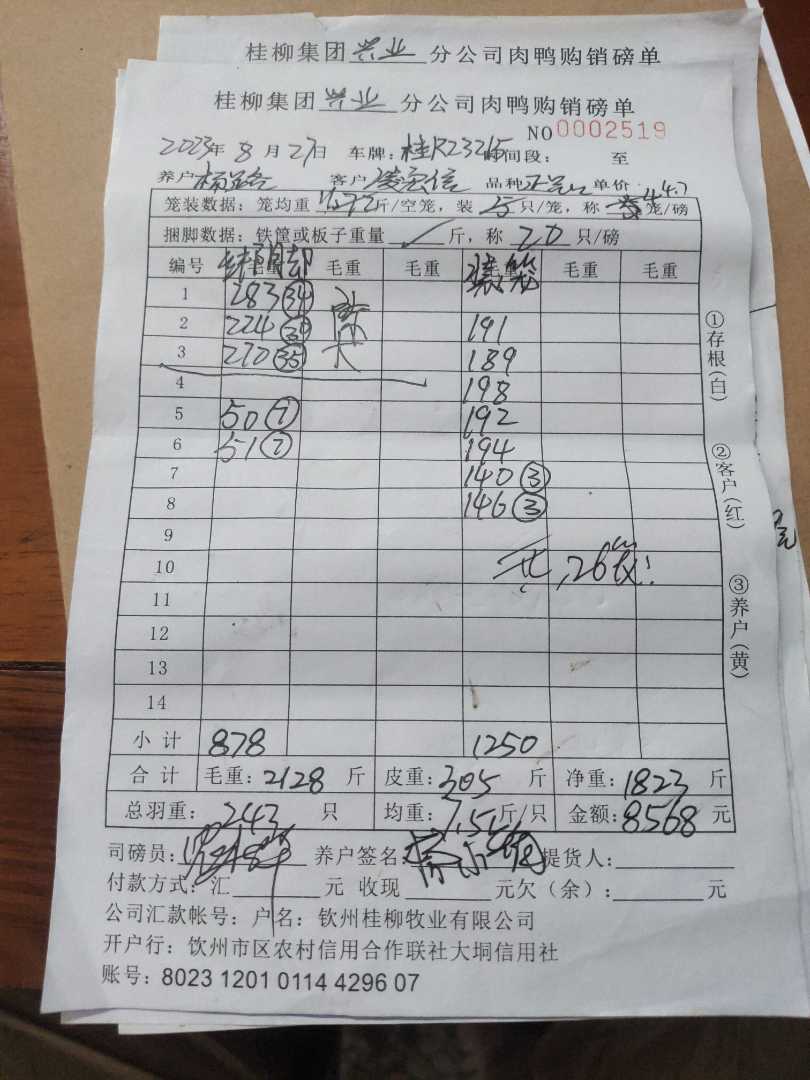 桂柳集团兴业分公司肉鸭购销磅单
桂柳集团兴业分公司肉鸭购销磅单
NO 0002519
2023年8月27日 车牌:桂R23215 时间段: 至
养户 客户 品种 单价 4.7
笼装数据:笼均重 斤/空笼,装 5 只/笼,称 4 笼/磅
捆脚数据:铁筐或板子重量 斤,称 20 只/磅
编号 毛重 毛重 毛重 装笼 毛重 毛重 毛重
1 283 34
2 224 191
3 270 35 189
4 198
5 50 7 192
6 51 7 194
7 140 3
8 146 3
9
10 共,26
11
12
13
14
小计 878 1250
合计 毛重:2128 斤 皮重:305 斤 净重:1823 斤
总羽重:243 只 均重:7.5 斤/只 金额:8568 元
司磅员: 养户签名: 提货人:
付款方式:汇 元 收现 元欠(余): 元
公司汇款帐号:户名:钦州桂柳牧业有限公司
开户行:饮州市区农村信用合作联社大垌信用社
账号:8023 1201 0114 4296 07
①存根(白)
②客户(红)
③养户(黄)